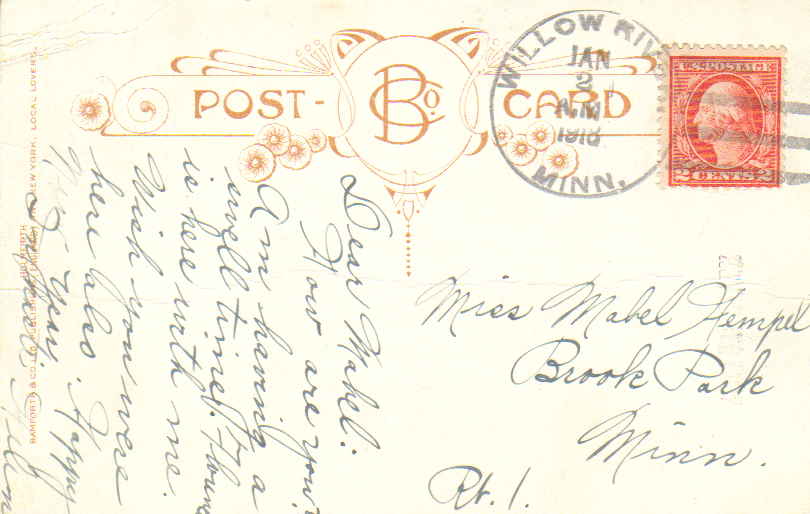 POST-
B Co.
CARD
WILLOW RIV
JAN
2
A.M.
1918
MINN.
U.S. POSTAGE
2 CENTS 2
Dear Mabel:
How are you?
Am having a
swell time.
is here with me.
Wish you were
here also. Happy
New Year.
Miss Mabel Hempel
Brook Park
Minn.
Rt. 1.
BAMFORTH & CO LTD. PUBLISHERS NEW YORK. LOCAL LOVERS.
HOLMFIRTH